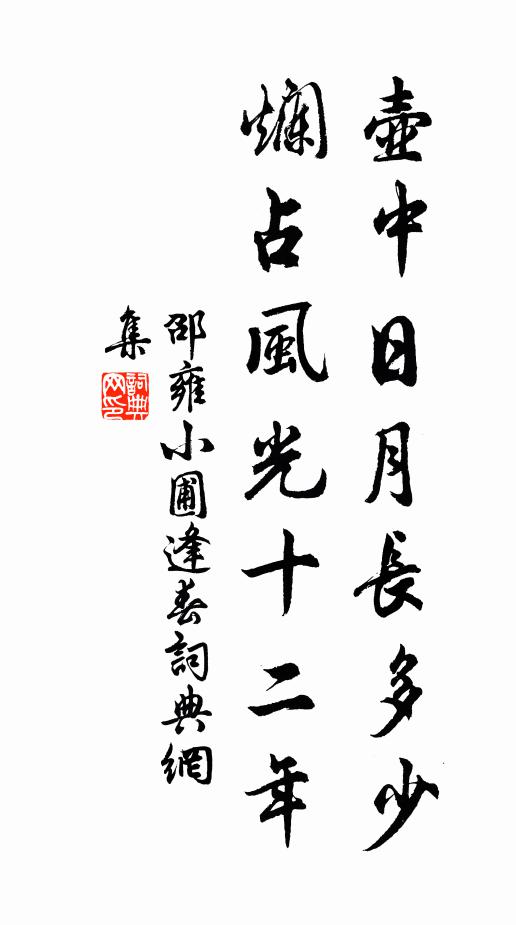 壺中日月長多少
爛占風光十二年
邵雍小圃逢春詞典網
集
詞典
网印